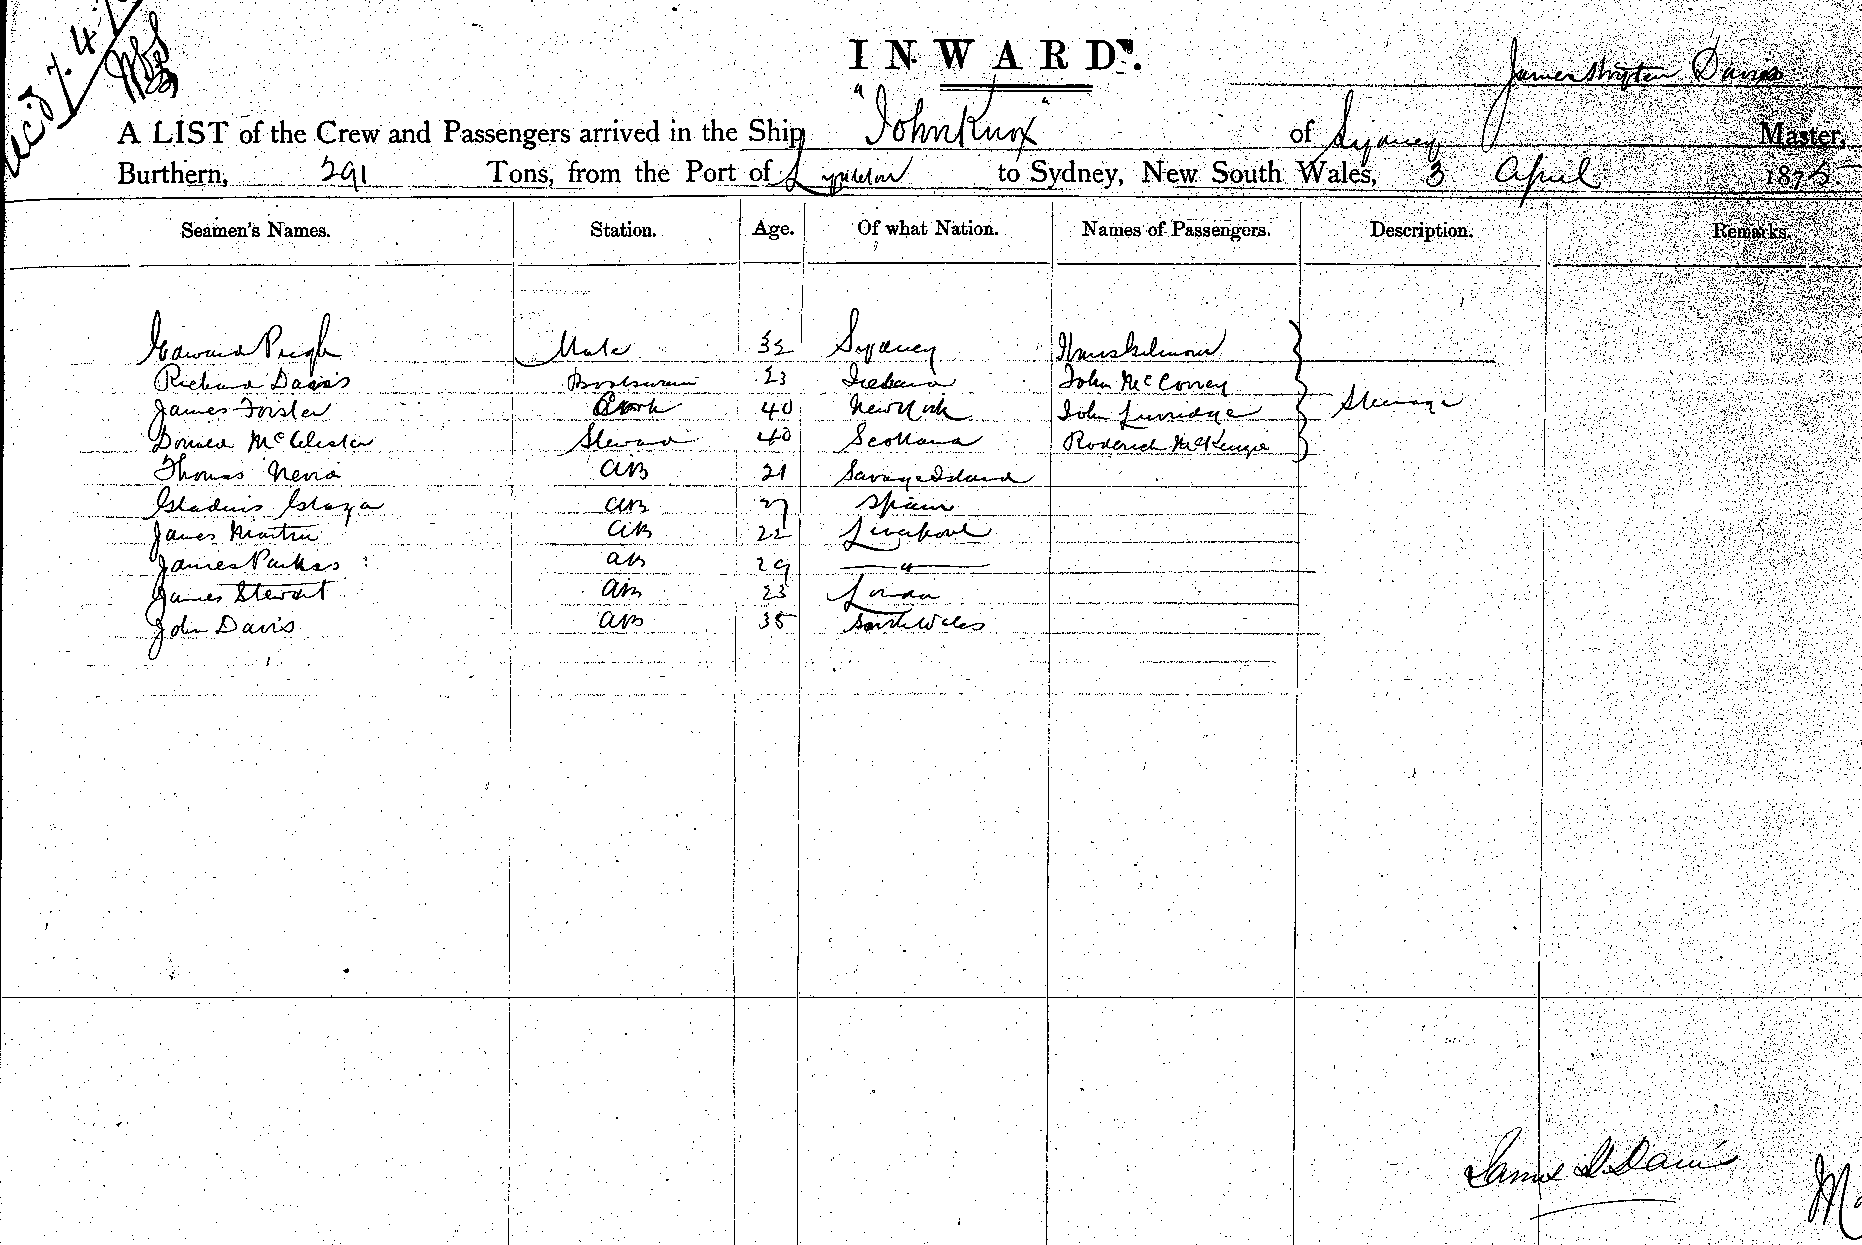 INWARD.
James Davies
A LIST of the Crew and Passengers arrived in the Ship "John Knox" of Sydney Master,
Burthern, 291 Tons, from the Port of Lyttelton to Sydney, New South Wales, 3 April 1875
Seamen's Names. Station. Age. Of what Nation. Names of Passengers. Description. Remarks.
Edward Pugh Mate 32 Sydney
Richard Davis Boatswain 23 Ireland John McConney
James Forster Cook 40 New York John
Donald McAlister Steward 40 Scotland Roderick McKenzie Steerage
Thomas AB 21 Savage Island
AB 27 Spain
James Martin AB 22 Liverpool
James Parkes AB 29 — " —
James Stewart AB 23 London
John Davis AB 35 South Wales
James S Davis